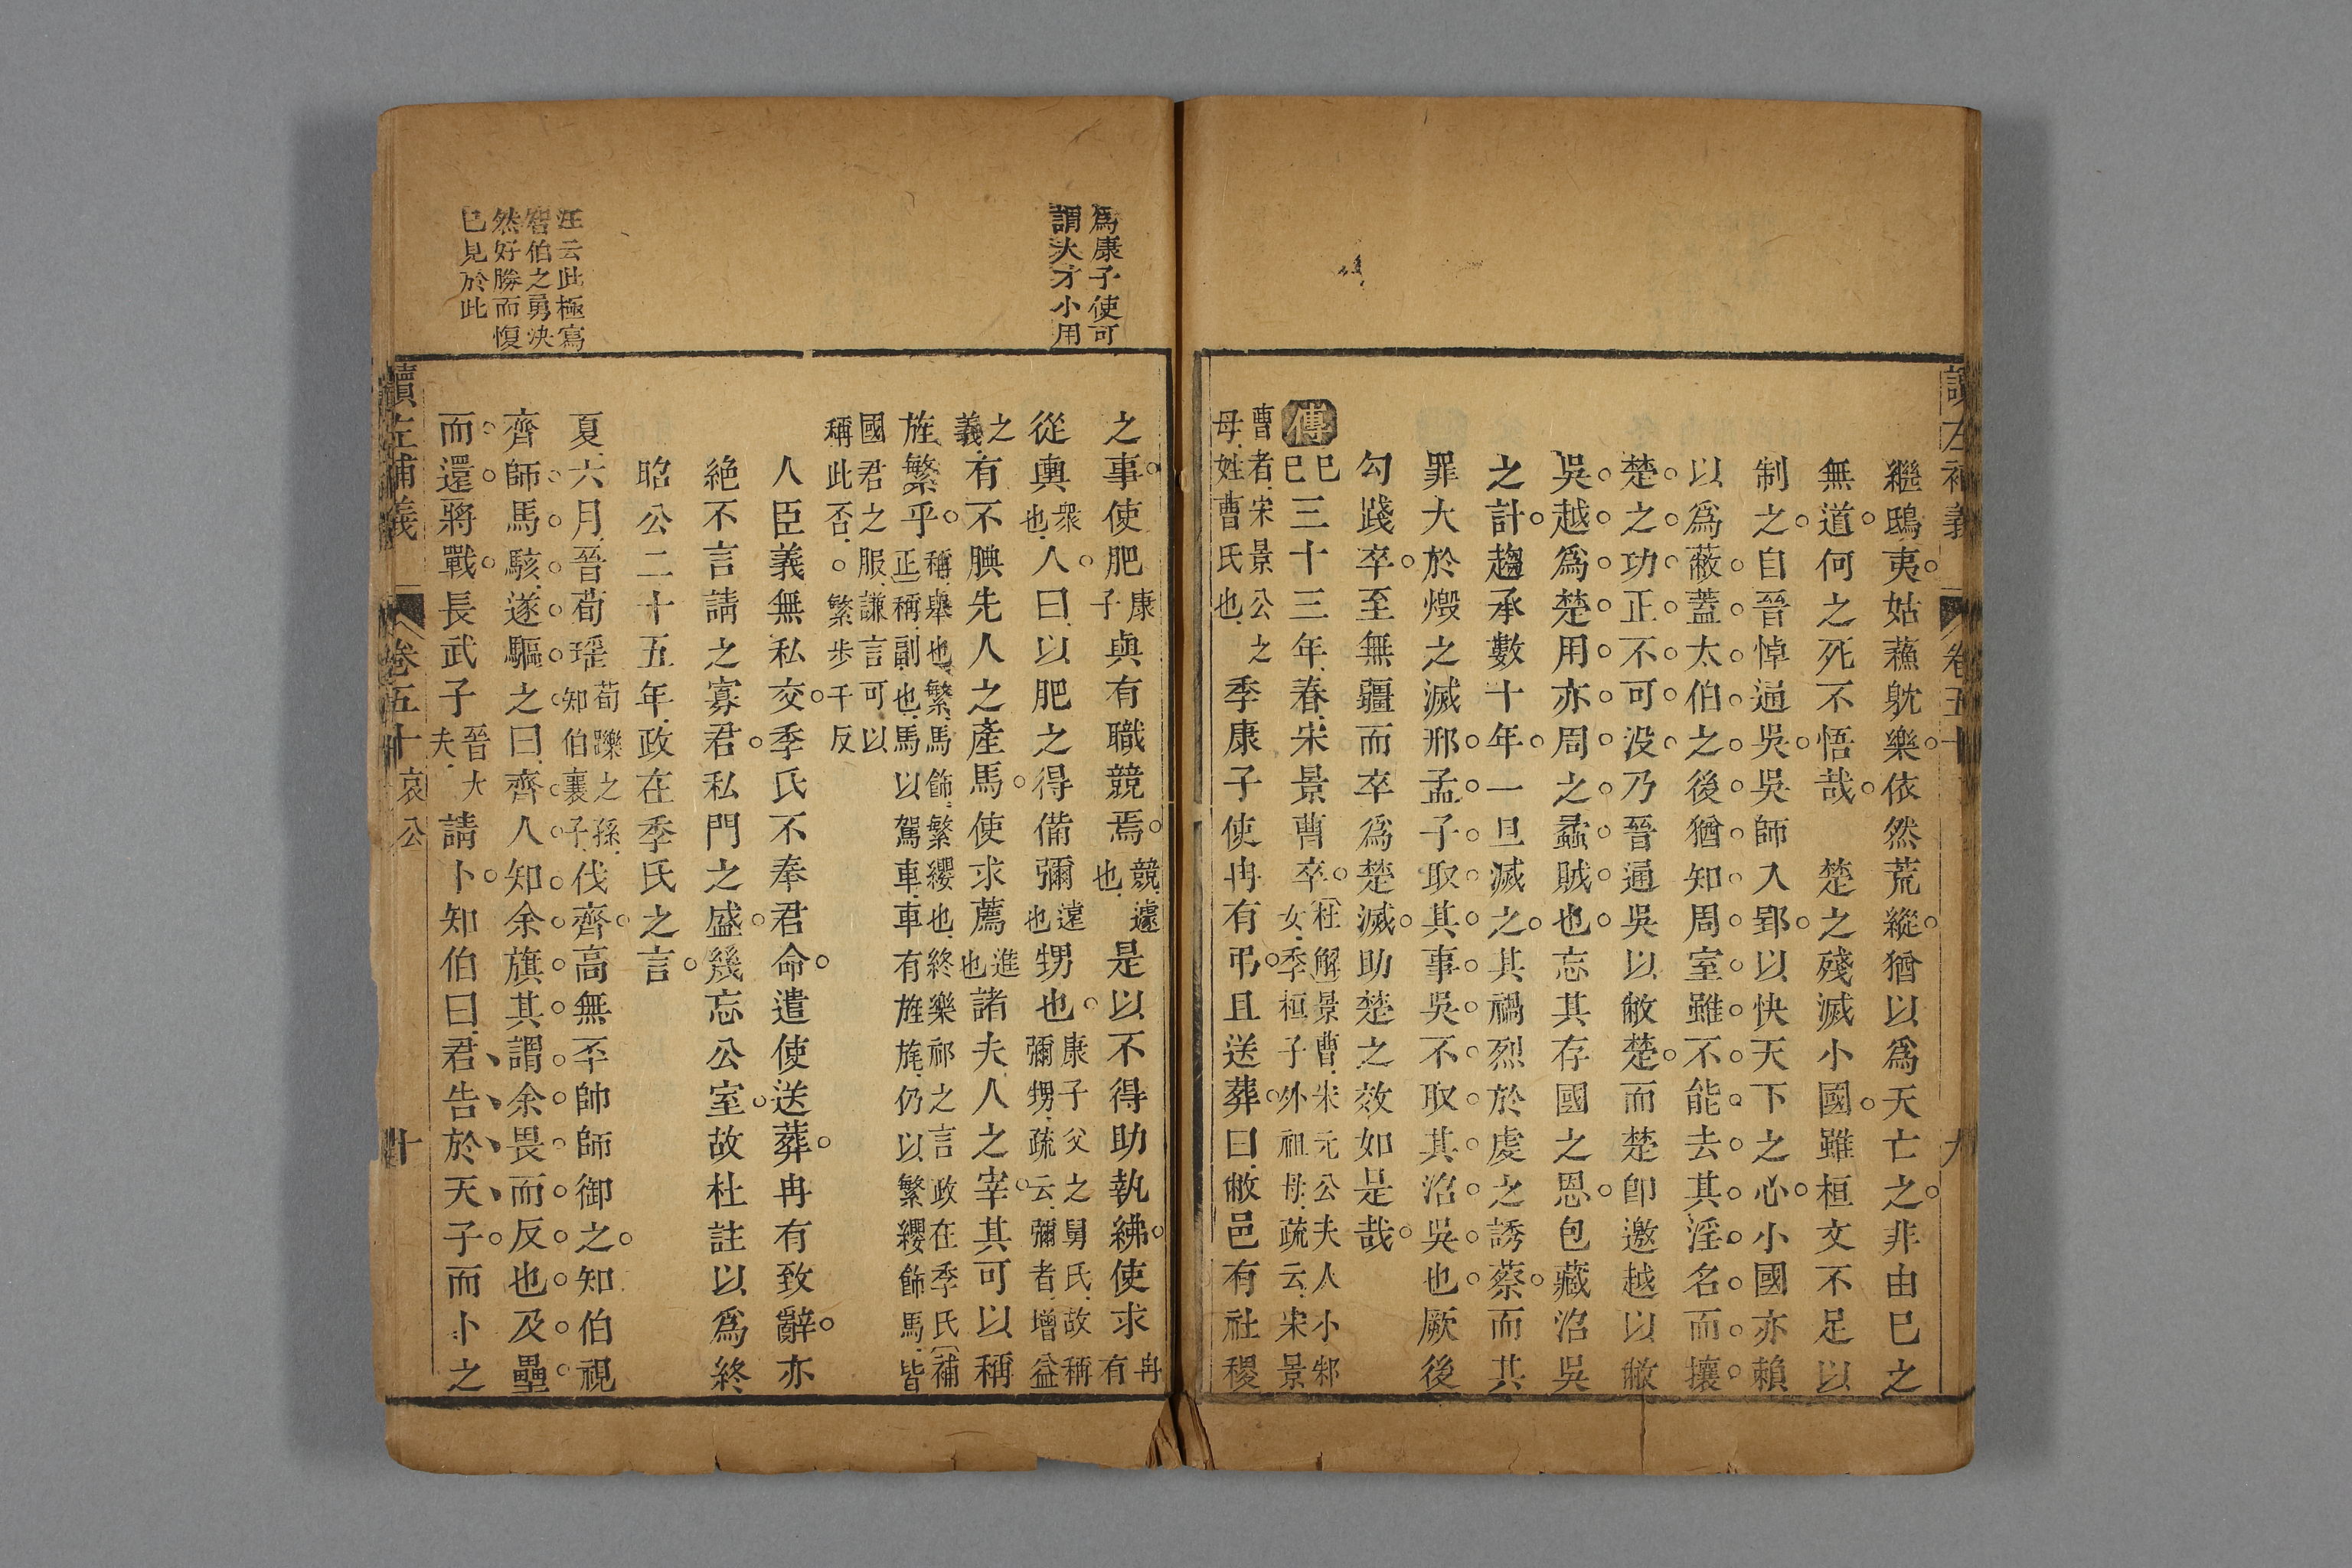 讀左補義
卷五十
九
繼鴟夷姑蘇躭樂依然荒縱猶以爲天亡之非由已之
無道何之死不悟哉　楚之殘滅小國雖桓文不足以
制之自晉悼通吳吳師入郢以快天下之心小國亦賴
以爲蔽蓋太伯之後猶知周室雖不能去其淫名而攘
楚之功正不可没乃晉通吳以敝楚而楚即邀越以敝
吳越爲楚用亦周之蟊賊也忘其存國之恩包藏沼吳
之計趨承數十年一旦滅之其禍烈於虔之誘蔡而其
罪大於燬之滅邢孟子取其事吳不取其沼吳也厥後
勾踐卒至無疆而卒爲楚滅助楚之效如是哉
傳
巳巳三十三年春宋景曹卒杜解景曹宋元公夫人小邾女季桓子外祖母疏云宋景
曹者宋景公之母姓曹氏也季康子使冉有弔且送葬曰敝邑有社稷
爲康子使可
謂大才小用
之事使肥康子與有職競焉競遽也是以不得助執紼使求冉有
從輿衆也人曰以肥之得備彌遠也甥也康子父之舅氏故稱彌甥疏云彌者增益
之義有不腆先人之產馬使求薦進也諸夫人之宰其可以稱
旌繁乎稱舉也繁馬飾繁纓也終樂祁之言政在季氏補正稱副也馬以駕車車有旌旄仍以繁纓飾馬皆
國君之服謙言可以稱此否○繁步干反
人臣義無私交季氏不奉君命遣使送葬冉有致辭亦
絕不言請之寡君私門之盛幾忘公室故杜註以爲終
昭公二十五年政在季氏之言
夏六月晉荀瑤荀躒之孫知伯襄子伐齊高無丕帥師御之知伯視
齊師馬駭遂驅之曰齊人知余旗其謂余畏而反也及壘
而還將戰長武子晉大夫請卜知伯曰君告於天子而卜之
汪云此極寫
智伯之勇决
然好勝而愎
已見於此
讀左補義
卷五十
哀公
十